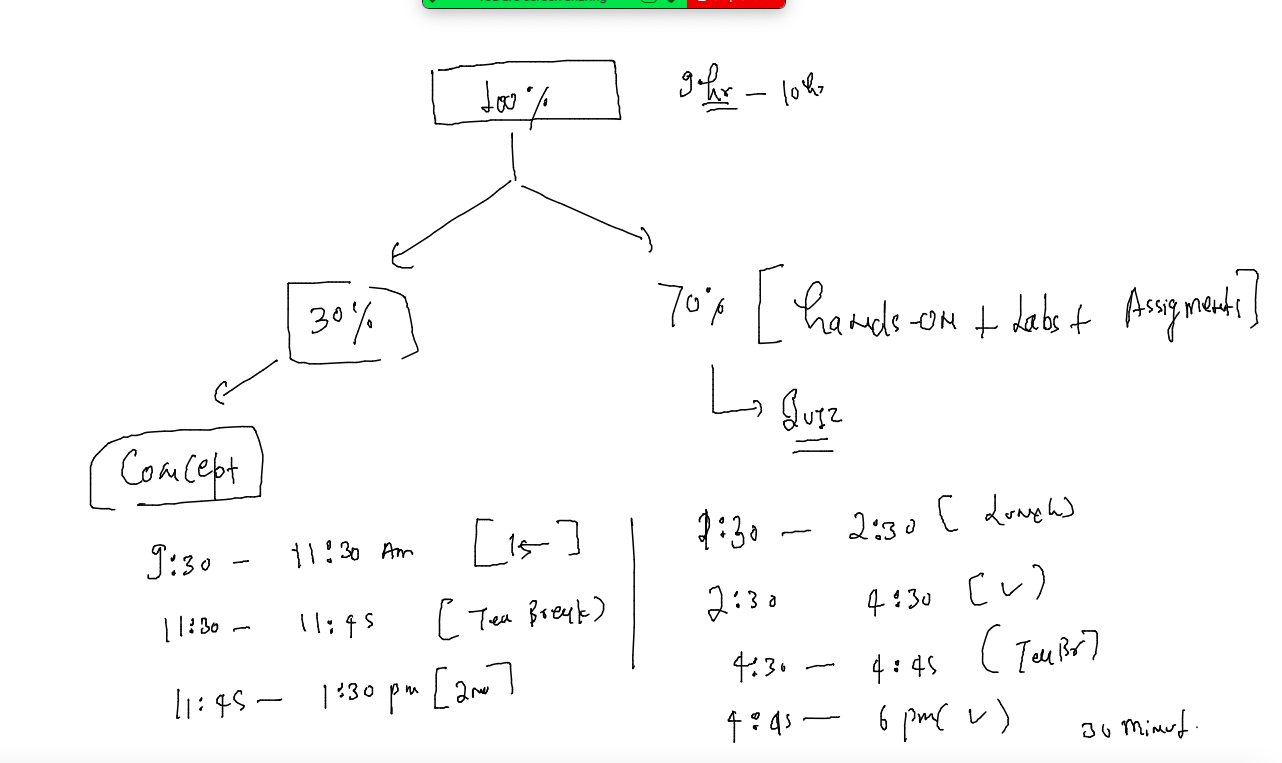 100%
9hr - 10hr
30%
70% [ Hands-on + Labs + Assigments]
Quiz
Concept
9:30 - 11:30 Am [1st]
11:30 - 11:45 [Tea Break)
11:45 - 1:30 pm [2nd]
1:30 - 2:30 [Lunch)
2:30 4:30 [✓)
4:30 - 4:45 (Tea Br]
4:45 - 6 pm(✓)
30 Minut.